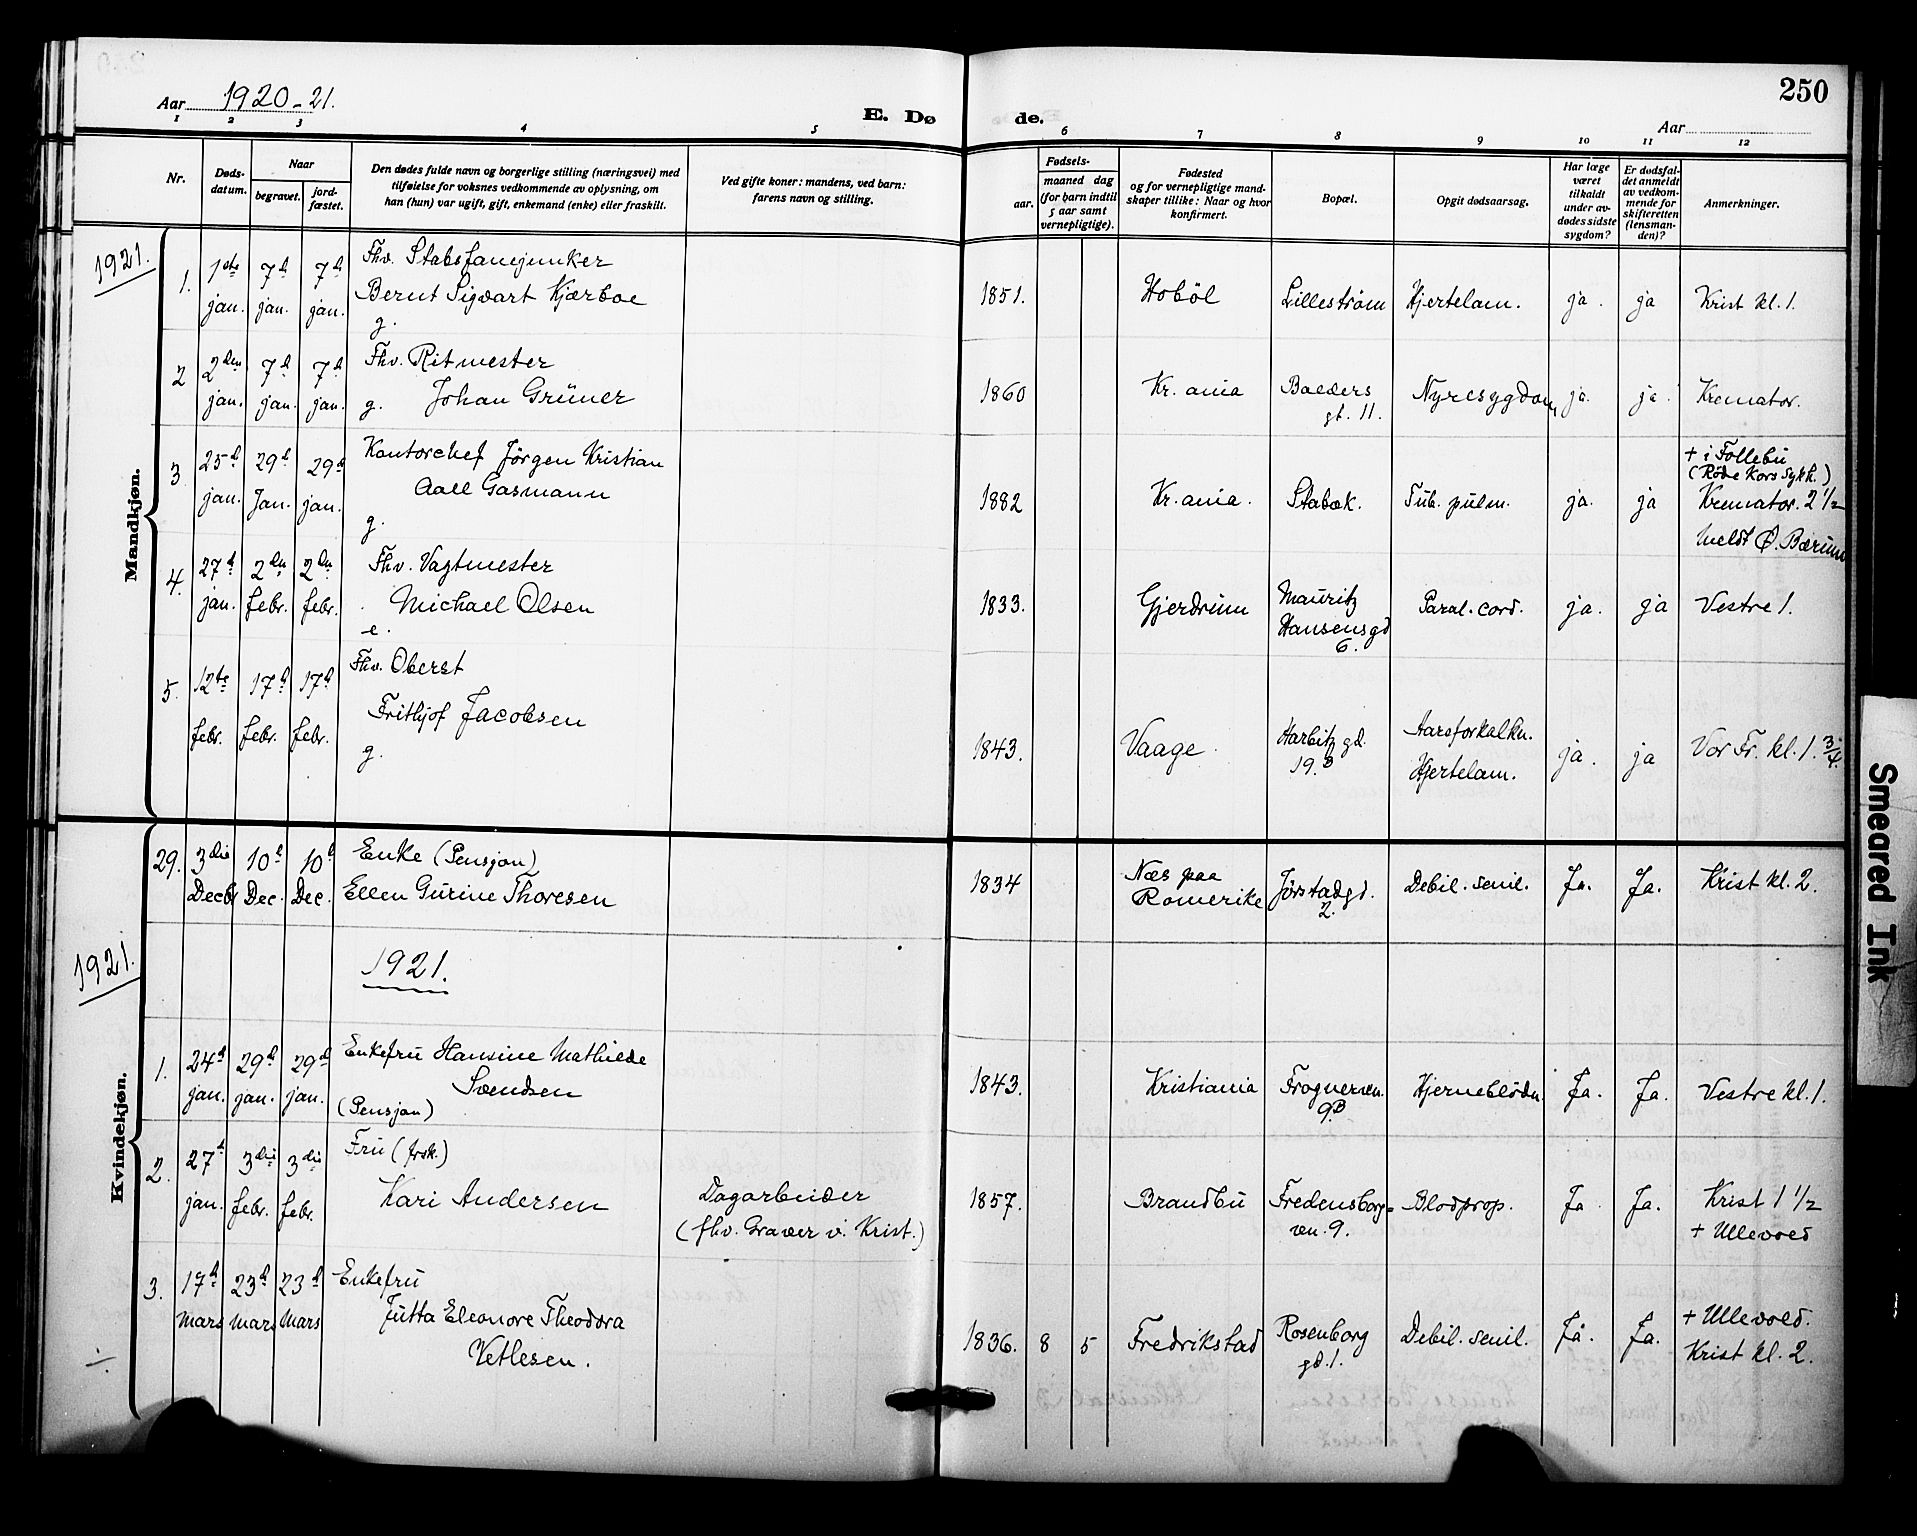 250
Aar 1920-21.
E. Dø de.
Aar
1 2 3 4 5 6 7 8 9 10 11 12
Nr.
Døds-
datum.
Naar
begravet.
jord-
fæstet.
Den dødes fulde navn og borgerlige stilling (næringsvei) med
tilføielse for voksnes vedkommende av oplysning, om
han (hun) var ugift, gift, enkemand (enke) eller fraskilt.
Ved gifte koner: mandens, ved barn:
farens navn og stilling.
Fødsels-
aar.
maaned dag
(for barn indtil
5 aar samt
vernepligtige).
Fødested
og for vernepligtige mand-
skaper tillike: Naar og hvor
konfirmert.
Bopæl.
Opgit dødsaarsag.
Har læge
været
tilkaldt
under av-
dødes sidste
sygdom?
Er dødsfal-
det anmeldt
av vedkom-
mende for
skifteretten
(lensman-
den)?
Anmerkninger.
Mandkjøn.
1921.
1. 1ste jan. 7d jan. 7d jan.
Fhv. Stabsfanejunker
Bernt Sigvart Kjærboe
g.
1851. Hobøl Lillestrøm Hjertelam. ja. ja Krist kl. 1.
2 2den jan. 7d jan. 7d jan.
Fhv. Ritmester
g. Johan Grüner
1860 Kr. ania Balders
gt. 11.
Nyresygdom ja. ja Kremator.
3 25d jan. 29d Jan. 29d jan.
Kontorchef Jörgen Kristian
Aall Gasmann
g.
1882 Kr. ania. Stabæk. Tub. pulm. ja. ja
+ i Follebu
(Røde Kors Sykh.)
Kremator. 2 1/2
meldt Ø. Bærum
4. 27d jan. 2den febr. 2den febr.
Fhv. Vagtmester
Michael Olsen
e.
1833. Gjerdrum Mauritz
Hansensgd
6.
Paral. cord. ja. ja Vestre 1.
5. 12te febr. 17d febr. 17d febr.
Fhv. Oberst
Frithjof Jacobsen
g.
1843. Vaage. Harbitz gd.
19.B
Aareforkalkn.
Hjertelam.
ja. ja Vor Fr. kl. 1. 3/4
Kvindekjøn.
29. 3die Decbr 10d Dec. 10d Dec.
Enke (Pensjon)
Ellen Gurine Thoresen
1834 Næs paa
Romerike
Jørstadgd.
2.
Debil. senil. Ja. Ja. Krist kl. 2.
1921.
1921.
1. 24d jan. 29d jan. 29d jan.
Enkefru Hansine Mathilde
Svendsen
(Pensjon)
1843. Kristiania Frognerven.
9B
Hjerneblødn. Ja. Ja. Vestre kl. 1.
2. 27d jan. 3die febr. 3die febr.
Fru (frsk.)
Kari Andersen
Dagarbeider
(fhv. Graver v. Krist.)
1857. Brandbu Fredensborg-
ven. 9.
Blodprop. Ja Ja. Krist 1 1/2
+ Ullevold
3. 17d Mars 23d Mars 23d Mars
Enkefru
Jutta Eleonore Theodora
Vetlesen.
1836. 8 5 Fredrikstad Rosenborg
gd. 1.
Debil. senil. Ja. Ja.
+ Ullevold.
Krist kl. 2.
Smeared Ink